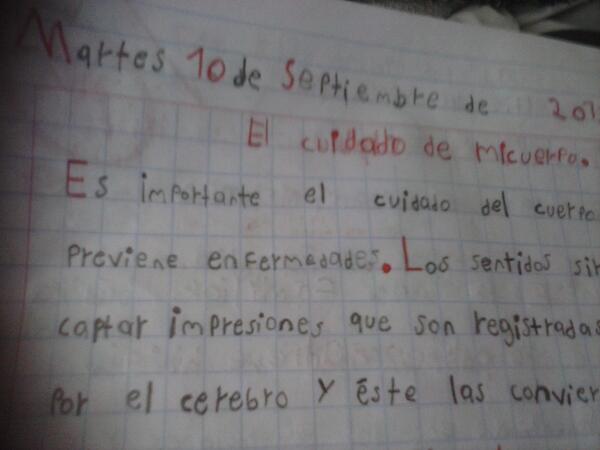 Martes 10 de Septiembre de 201
El cuidado de micuerpo.
Es importante el cuidado del cuerpo
Previene enfermedades. Los sentidos sir
captar impresiones que son registradas
Por el cerebro y éste las convier